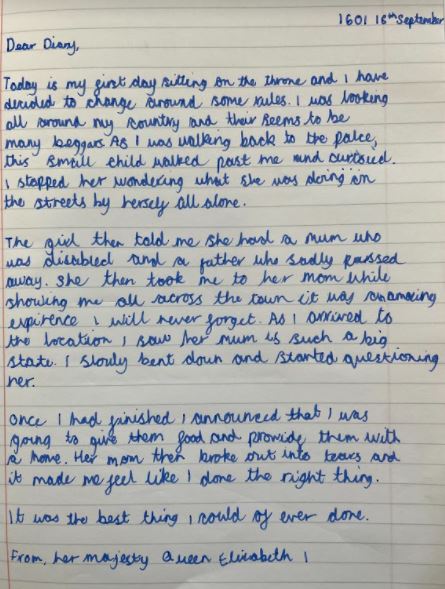 1601 16th September
Dear Diary,
Today is my first day sitting on the throne and I have
decided to change around some rules. I was looking
all around my country and their seems to be
many beggars. As I was walking back to the palce,
this small child walked past me and curtsied.
I stopped her wondering what she was doing on
the streets by herself all alone.
The girl then told me she had a mum who
was disabled and a father who sadly passed
away. She then took me to her mom while
showing me all across the town it was an amazing
expirence I will never forget. As I arrived to
the location I saw her mum is such a big
state. I slowly bent down and started questioning
her.
Once I had finished I announced that I was
going to give them food and provide them with
a home. Her mom then broke out into tears and
it made me feel like I done the right thing.
It was the best thing I could of ever done.
From, her majesty Queen Elizabeth I